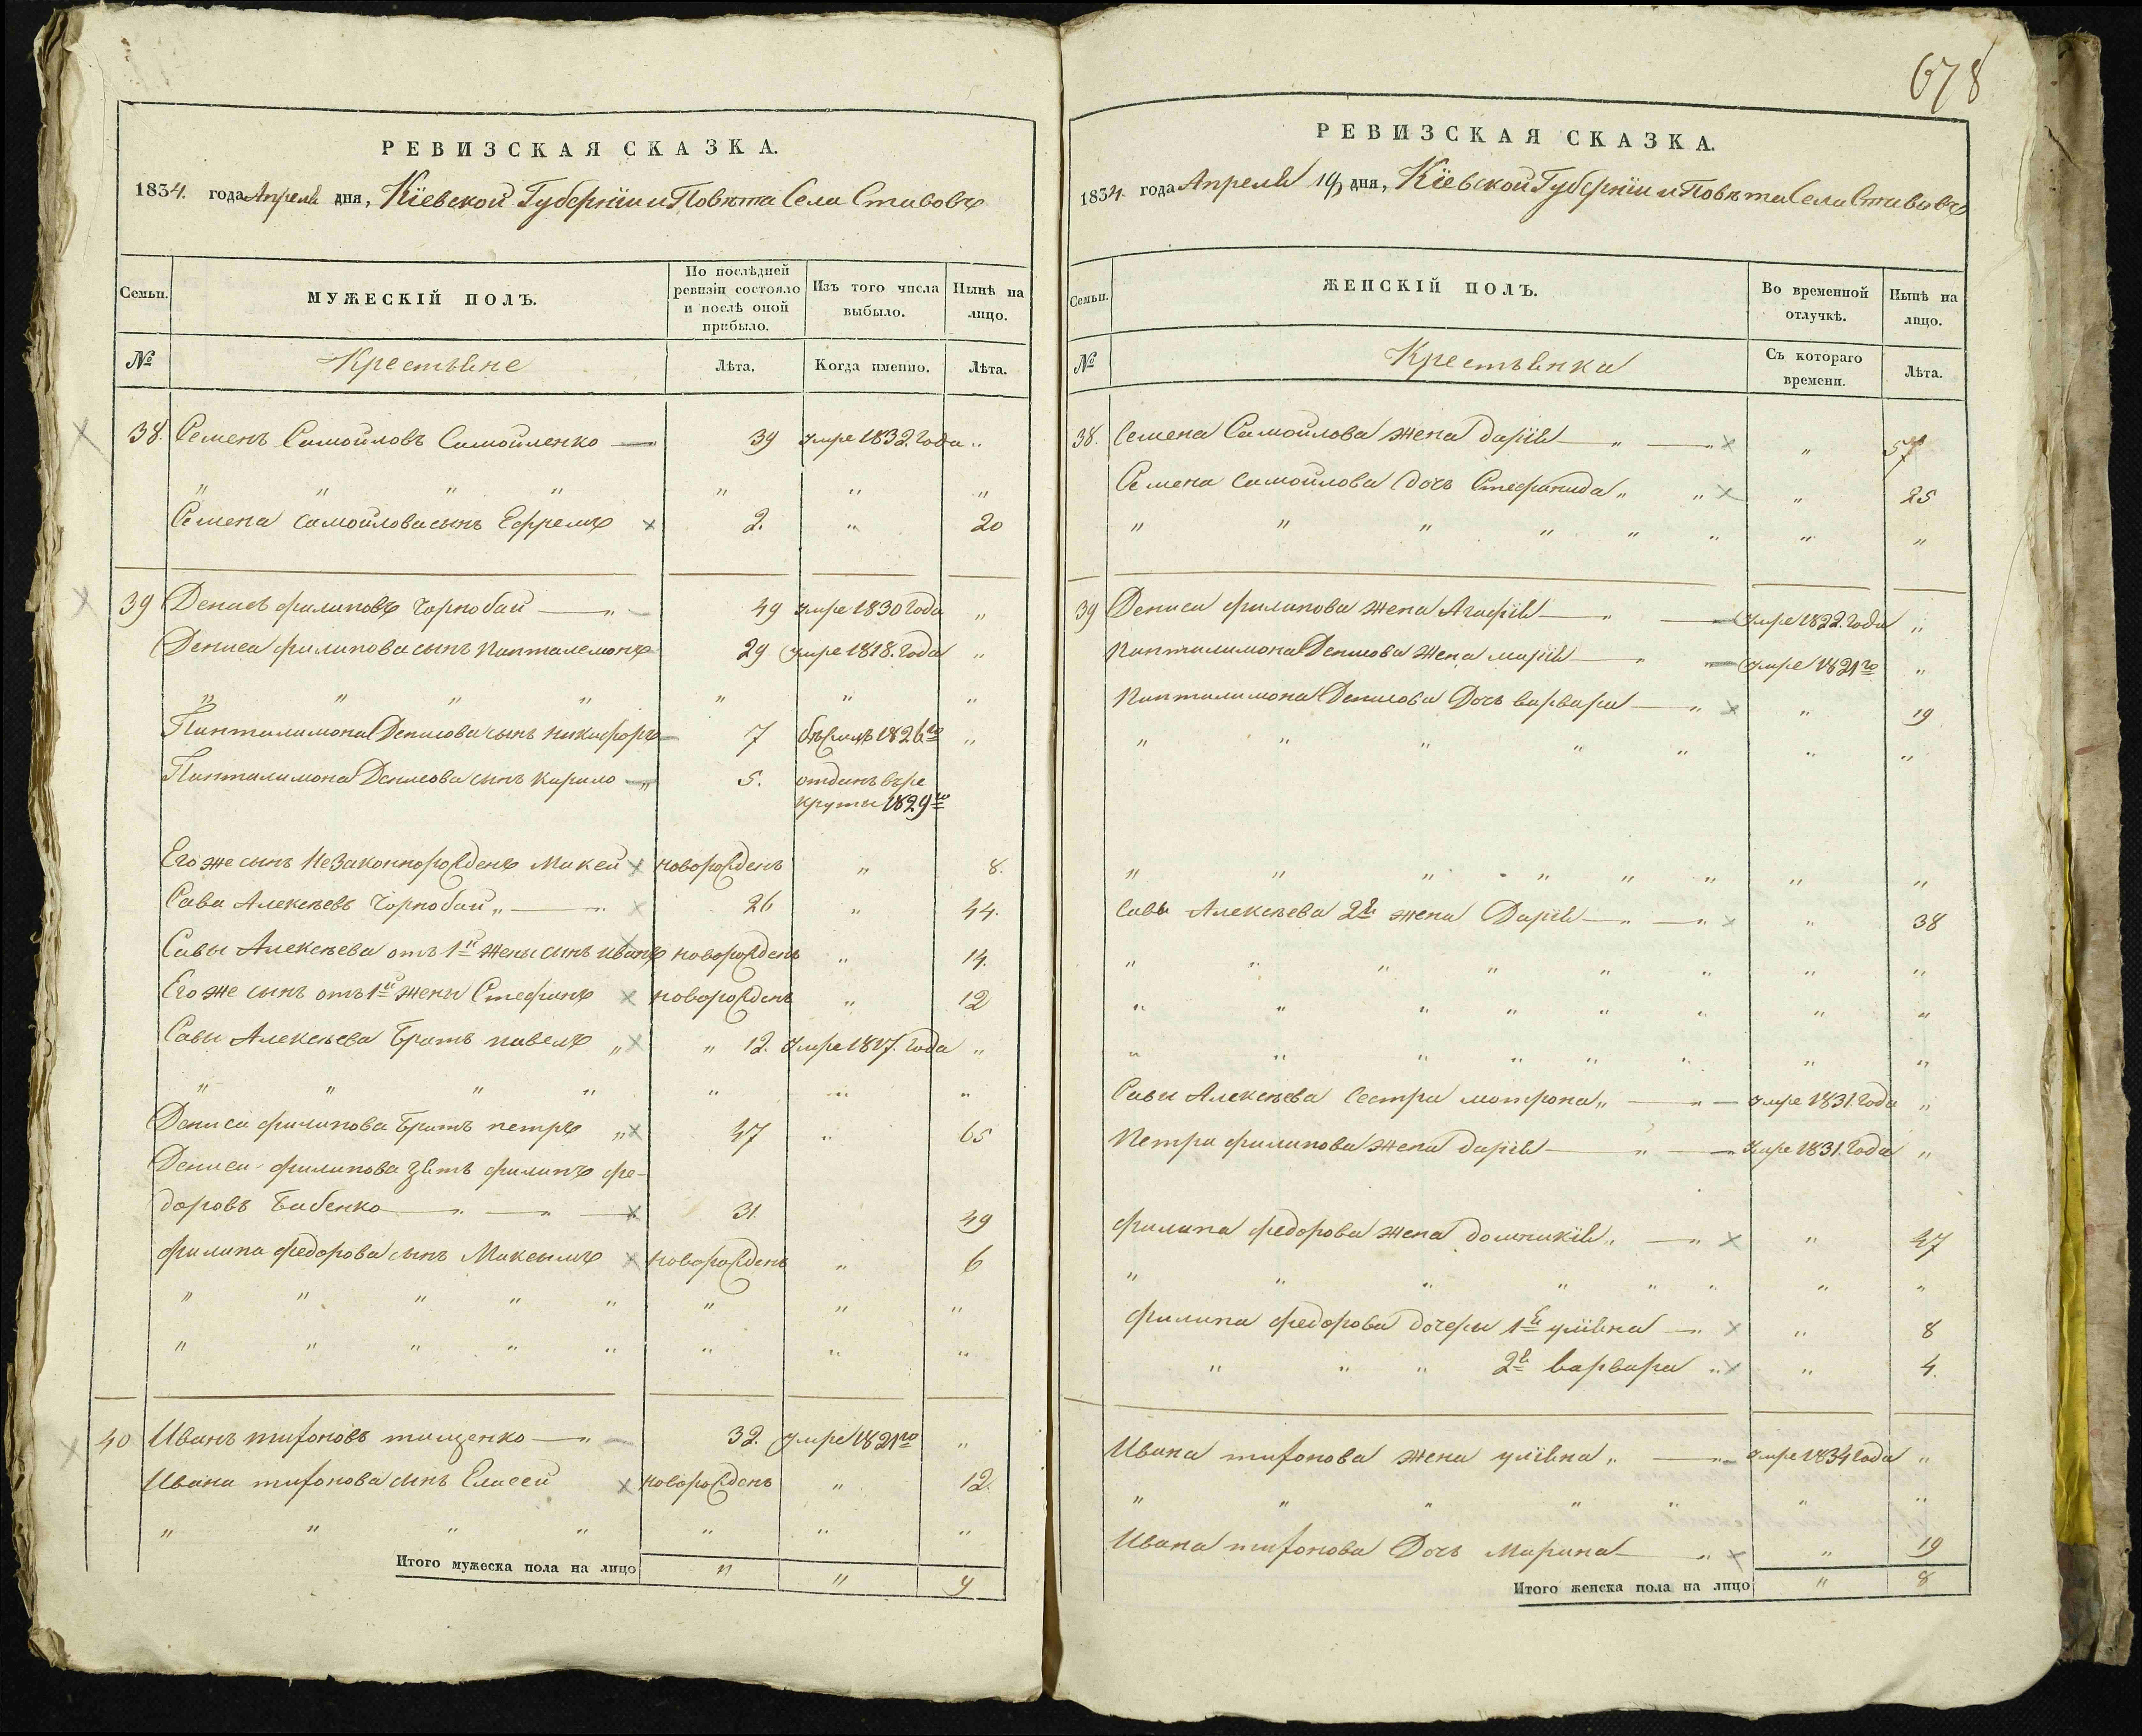 678
РЕВИЗСКАЯ СКАЗКА.
1834. года Апреля дня, Кіевской Губерніи и Повѣта Села Ставовъ
Семьи.
МУЖЕСКІЙ ПОЛЪ.
По послѣдней ревизіи состояло и послѣ оной прибыло.
Изъ того числа выбыло.
Нынѣ на лицо.
№
Крестьяне
Лѣта.
Когда именно.
Лѣта.
38. Семенъ Самойловъ Самойленко — 39 умре 1832. года „
„ „ „ „ „ „ „
Семена Самойлова сынъ Ефремъ × 2. „ 20
39 Денисъ филиповъ Чорнобай — „ 49 умре 1830 года „
Дениса филипова сынъ Панталемонъ 29 умре 1818. года „
„ „ „ „ „ „ „
Панталимона Денисова сынъ Никифоръ 7 бѣжалъ 1826го „
Панталимона Денисова сынъ Кирило — „ 5. отданъ въ ре
круты 1829го
Его же сынъ незаконнорожденъ Макей × новорожденъ „ 8.
Сава Алексѣевъ Чорнобай „ — „ × 26 „ 44.
Савы Алексѣева отъ 1й жены сынъ иванъ новорожденъ „ 14.
Его же сынъ отъ 1й жены Стефанъ × новорожденъ „ 12
Савы Алексѣева братъ павелъ „ × „ 12. умре 1817. года „
„ „ „ „ „ „ „
Дениса филипова братъ петръ „ × 47 „ 65
Дениса филипова зять филипъ фе-
доровъ Бабенко — „ — „ — × 31. 49
филипа федорова сынъ Максымъ × новорожденъ „ 6
„ „ „ „ „ „ „ „
„ „ „ „ „ „ „ „
40 Иванъ тифоновъ тищенко — „ 32. умре 1821го „
Ивана тифонова сынъ Елисей × новорожденъ „ 12.
„ „ „ „ „ „ „
Итого мужеска пола на лицо „ „ 9
РЕВИЗСКАЯ СКАЗКА.
1834. года Апреля 19 дня, Кіевской Губерніи и Повѣта Села Ставовъ
Семьи.
ЖЕНСКІЙ ПОЛЪ.
Во временной отлучкѣ.
Нынѣ на лицо.
№
Крестьянки
Съ котораго времени.
Лѣта.
38. Семена Самойлова жена дарія — „ — „ × „ 57
Семена Самойлова дочь Стефанида „ „ × „ 25
„ „ „ „ „ „ „ „
39 Дениса филипова жена Агафія — „ — умре 1822. года „
Панталимона Денисова жена марія — „ „ — умре 1821го „
Панталимона Денисова Дочь варвара — „ × „ 19
„ „ „ „ „ „ „
„ „ „ „ „ „ „ „
Савы Алексѣева 2я жена Дарія — „ — „ × „ 38
„ „ „ „ „ „ „ „
„ „ „ „ „ „ „ „
„ „ „ „ „ „ „ „
Савы Алексѣева Сестра мотрона „ — „ — умре 1831. года „
Петра филипова жена дарія — „ — умре 1831. года „
филипа федорова жена домникія „ — „ × „ 47
„ „ „ „ „ „ „ „
филипа федорова дочери 1я уліяна — „ × „ 8
„ „ „ 2я варвара „ × „ 4.
Ивана тифонова жена уліяна „ — „ — умре 1834 года „
„ „ „ „ „ „ „
Ивана тифонова Дочь Марина — „ × „ 19
Итого женска пола на лицо „ 8